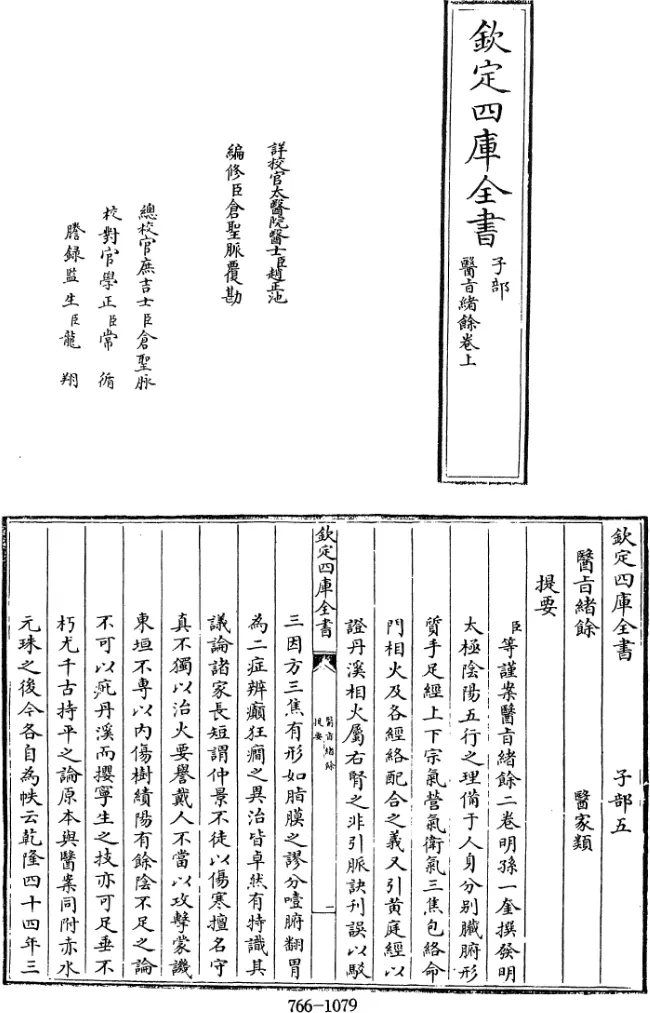 欽定四庫全書
子部
醫旨緒餘卷上
詳校官太醫院醫士臣趙正池
編修臣倉聖脈覆勘
總校官庶吉士臣倉聖脉
校對官學正臣常循
謄錄監生臣龍翔
欽定四庫全書 子部五
醫旨緒餘 醫家類
提要
臣等謹案醫旨緒餘二卷明孫一奎撰發明
太極陰陽五行之理備于人身分別臓腑形
質手足經上下宗氣營氣衛氣三焦包絡命
門相火及各經絡配合之義又引黄庭經以
證丹溪相火屬右腎之非引脈訣刊誤以駁
欽定四庫全書
醫旨緒餘
提要
一
三因方三焦有形如脂膜之謬分噎膈翻胃
為二症辨癲狂癇之異治皆卓然有特識其
議論諸家長短謂仲景不徒以傷寒擅名守
真不獨以治火要譽戴人不當以攻擊蒙譏
東垣不專以内傷樹績陽有餘陰不足之論
不可以疵丹溪而攖寧生之技亦可足垂不
朽尤千古持平之論原本與醫案同附赤水
元珠之後今各自為帙云乾隆四十四年三
766-1079